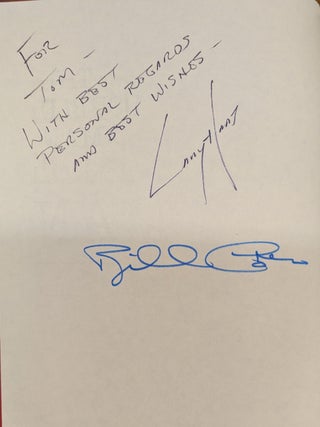 FOR
TOM -
WITH BEST
PERSONAL REGARDS
AND BEST WISHES -
GARY HART
Bill